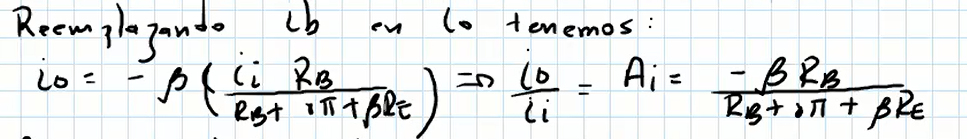 Reemplazando ib en io tenemos:
io = - β ( ii RB / RB + rπ + βRE ) => io / ii = Ai = - β RB / RB + rπ + βRE